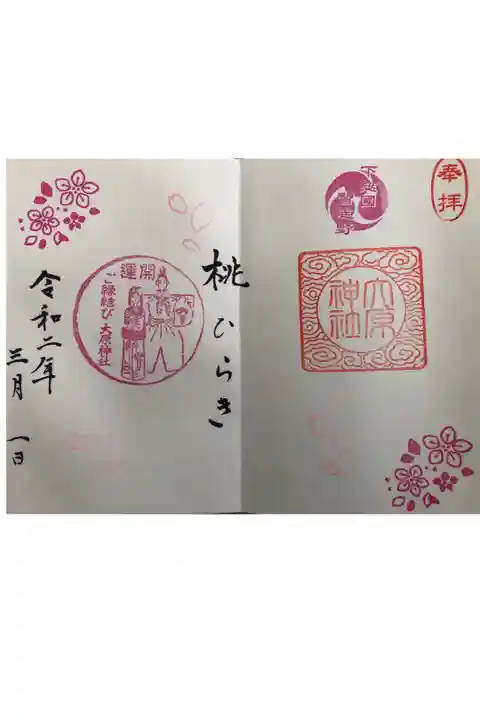 奉拝
下総国
習志野
大原
神社
桃ひらき
開運
ご縁結び 大原神社
令和二年
三月 一日